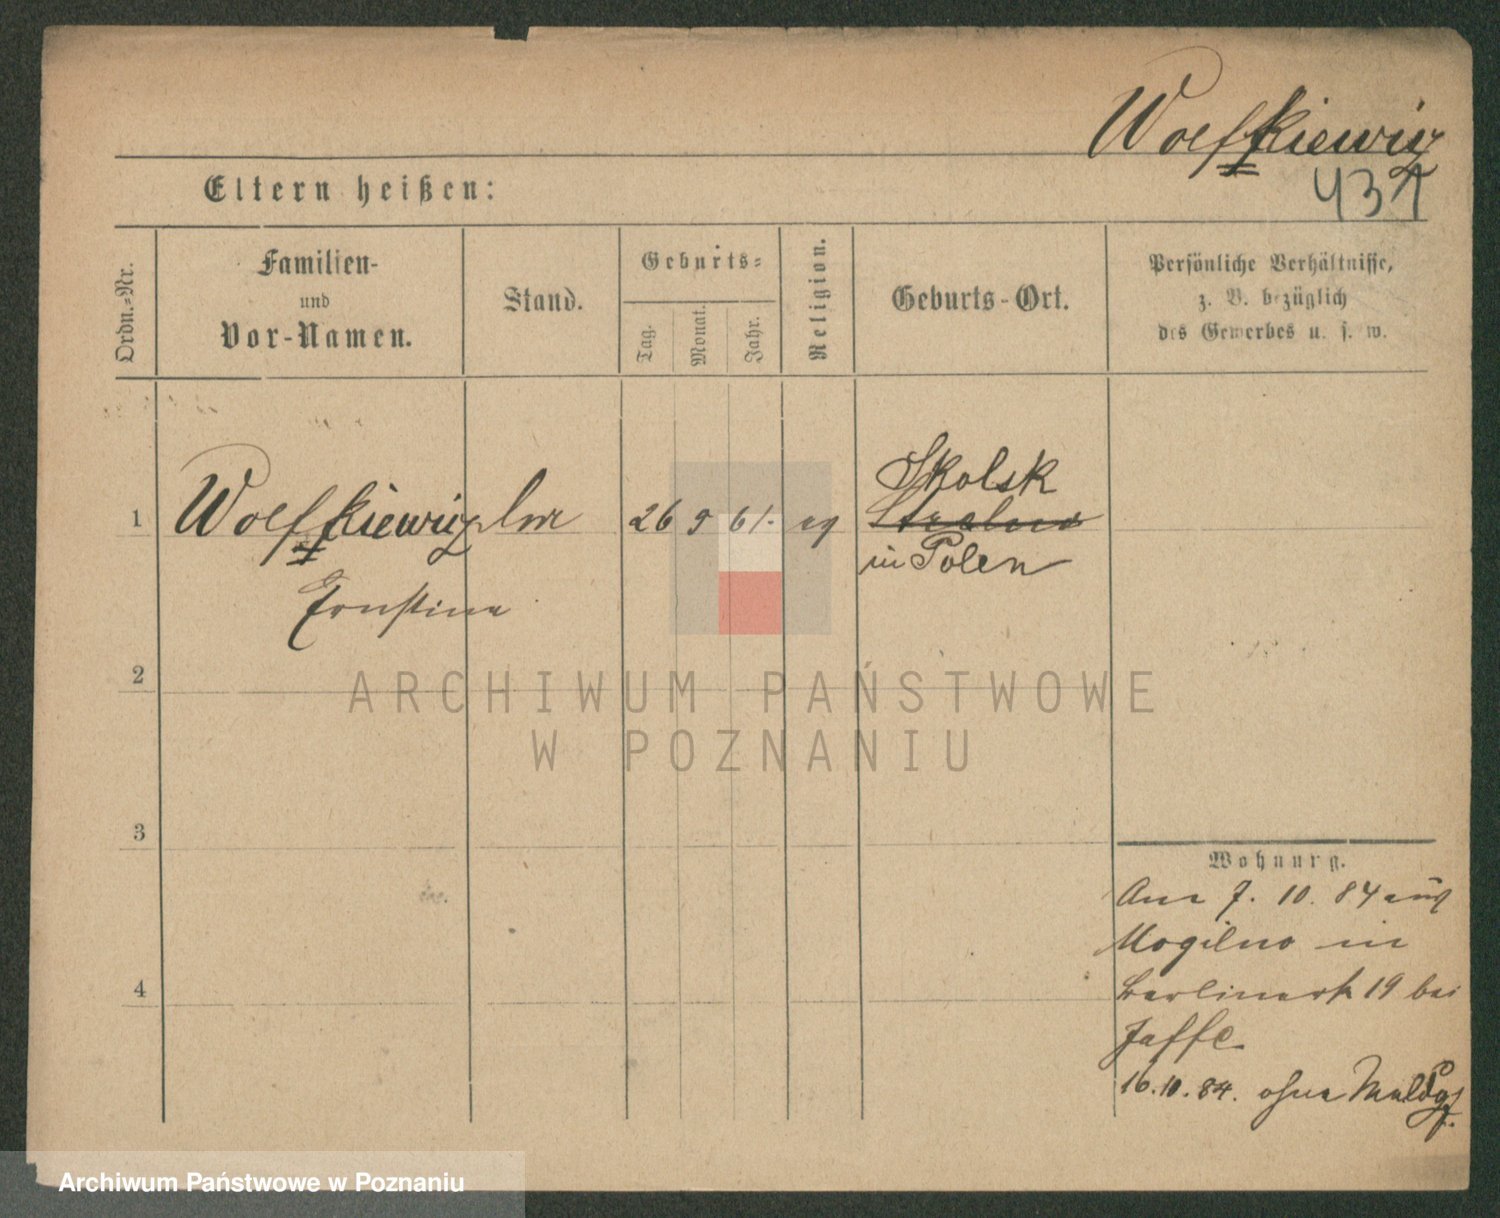 Wolffkiewicz
431
Eltern heißen:
Ordn.-Nr.
Familien-
und
Vor-Namen.
Stand.
Geburts-
Tag.
Monat.
Jahr.
Religion.
Geburts-Ort.
Persönliche Verhältnisse,
z. B. bezüglich
des Gewerbes u. s. w.
1
Wolffkiewicz
26 9 61.
Skolsk
Strelno
in Polen
Ernstine
2
ARCHIWUM PAŃSTWOWE
W POZNANIU
3
Wohnung.
Am 7. 10. 84 aus
Mogilno in
Berlinerstr 19 bei
4
Jaffe
16.10.84. ohne
Archiwum Państwowe w Poznaniu